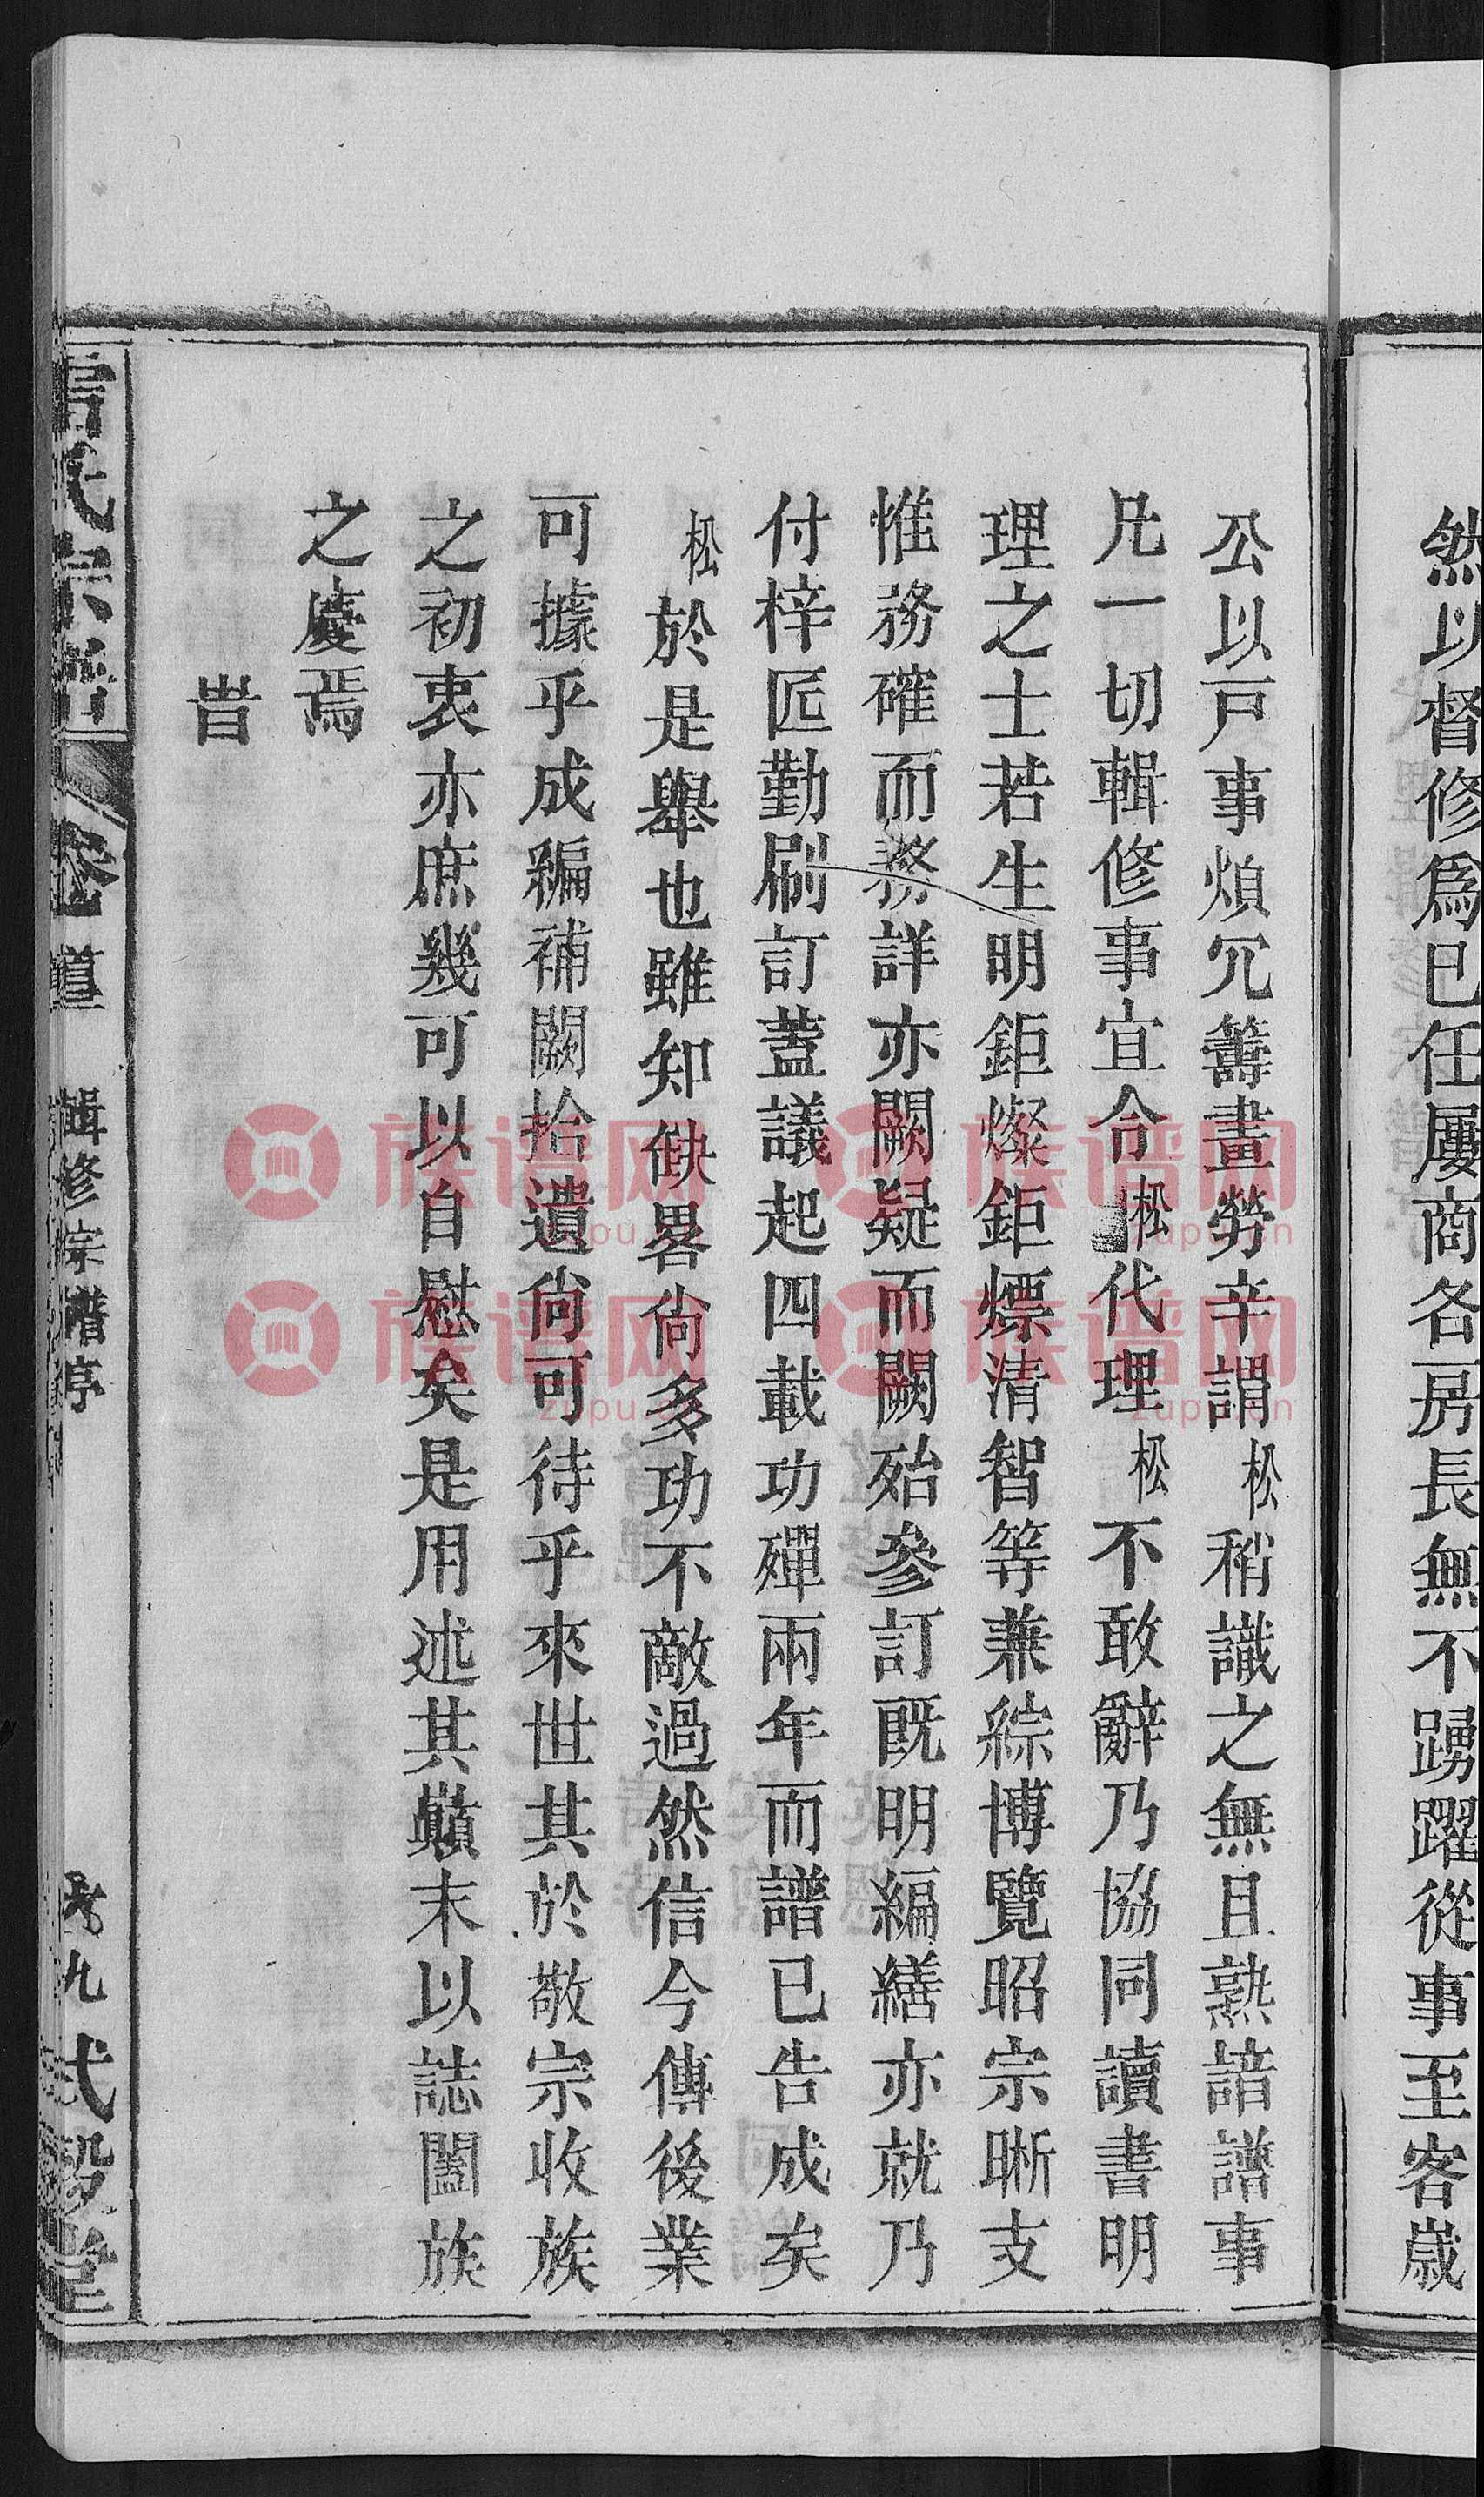 然以督修爲已任屢商各房長無不踴躍從事至客歲
公以戸事煩冗籌畫勞辛謂松稍識之無且熟諳譜事
凡一切輯修事宜令松代理松不敢辭乃協同讀書明
理之士若生明鉅燦鉅熛清智等兼綜博覽昭宗晰支
惟務確而務詳亦闕疑而闕殆參訂既明編繕亦就乃
付梓匠勤刷訂蓋議起四載功殫兩年而譜已告成矣
松於是舉也雖知缺畧尙多功不敵過然信今傳後業
可據乎成編補闕拾遺尙可待乎來世其於敬宗收族
之初衷亦庶幾可以自慰矣是用述其巔末以誌闔族
之慶焉
旹
氏宗譜 卷道 輯修宗譜序 九 式穀堂
族谱网
zupu.cn
族谱网
zupu.cn
族谱网
zupu.cn
族谱网
zupu.cn